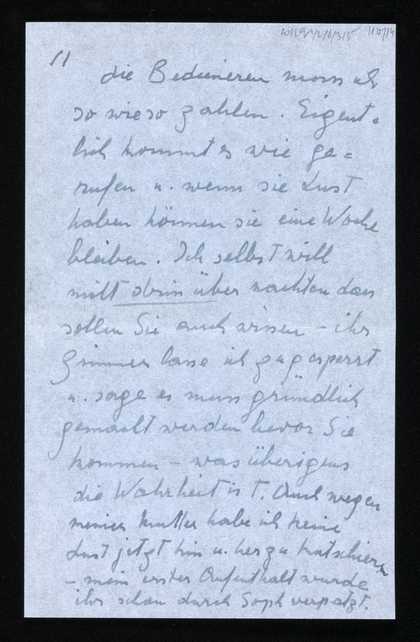 11
die Bedienerin muss ich
so wie so zahlen. Eigent=
lich kommt es wie ge=
rufen u. wenn sie Lust
haben können sie eine Woche
bleiben. Ich selbst will
nicht drin über nachten das
sollen Sie auch wissen – ihr
Zimmer lasse ich zugesperrt
u. sage es muss gründlich
gemacht werden bevor Sie
kommen – was überigens
die Wahrheit ist. Auch wegen
meiner Mutter habe ich keine
Lust jetzt hin u. her zu kutschieren
– mein erster Aufenthalt wurde
ihr schon durch Soph verpatzt.